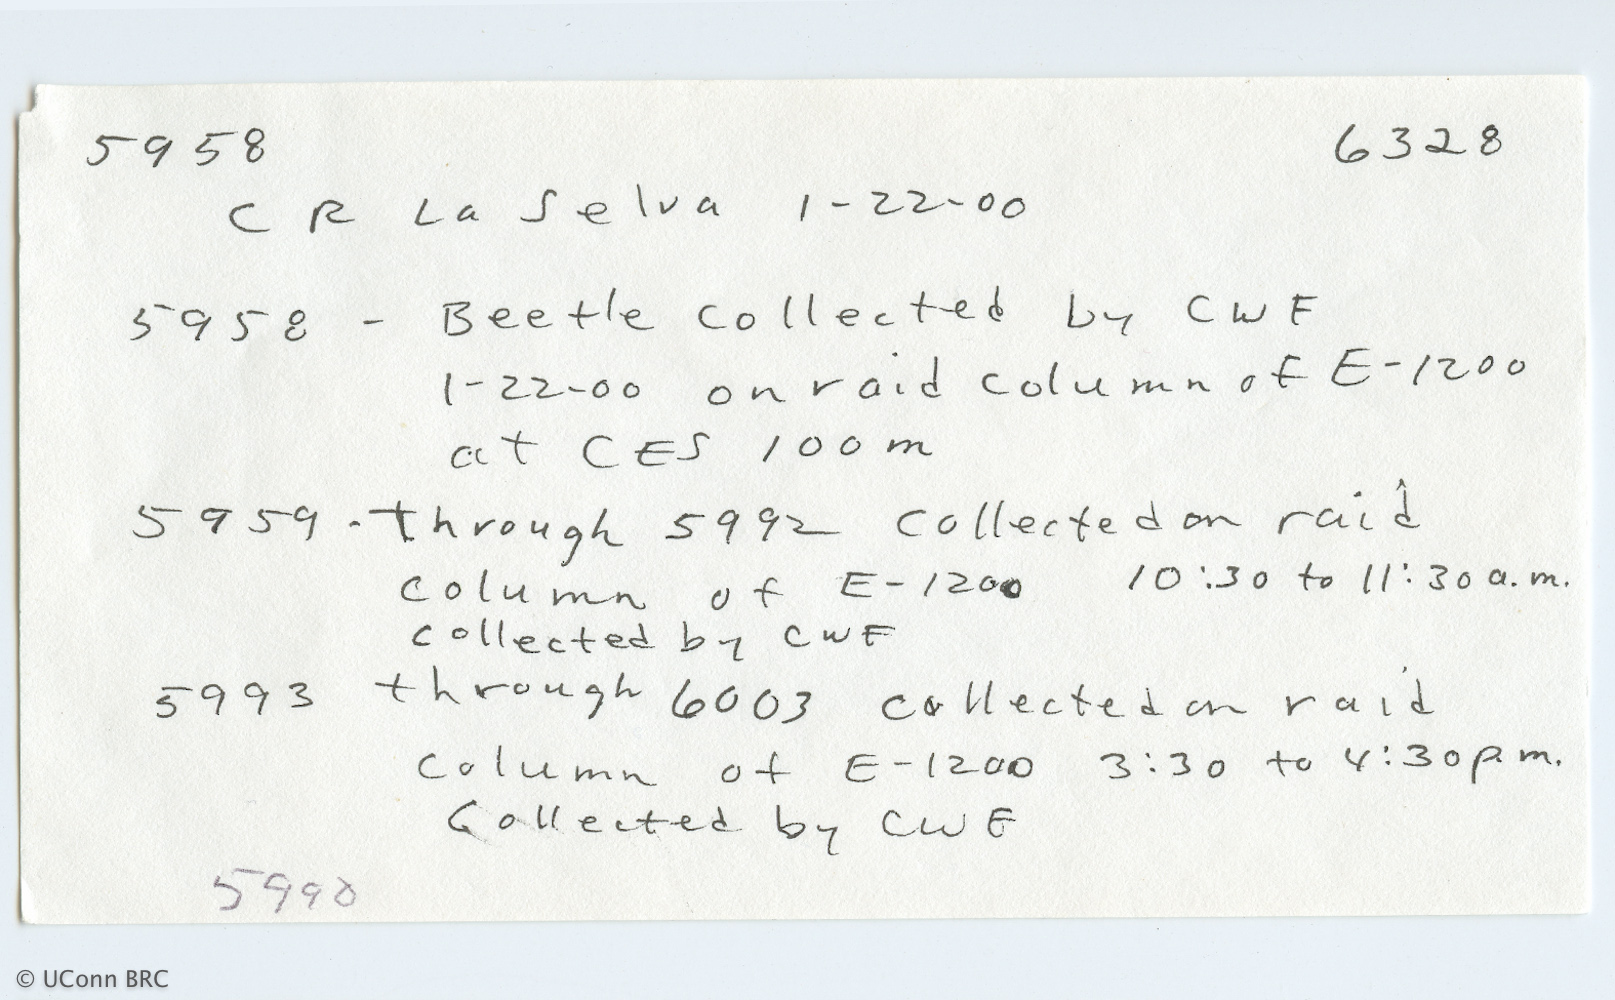 5958 6328
CR La Selva 1-22-00
5958 - Beetle collected by CWF
1-22-00 on raid column of E-1200
at CES 100m
5959 - through 5992 collected on raid
column of E-1200 10:30 to 11:30 a.m.
collected by CWF
5993 through 6003 collected on raid
column of E-1200 3:30 to 4:30 p.m.
Collected by CWF
5990
© UConn BRC